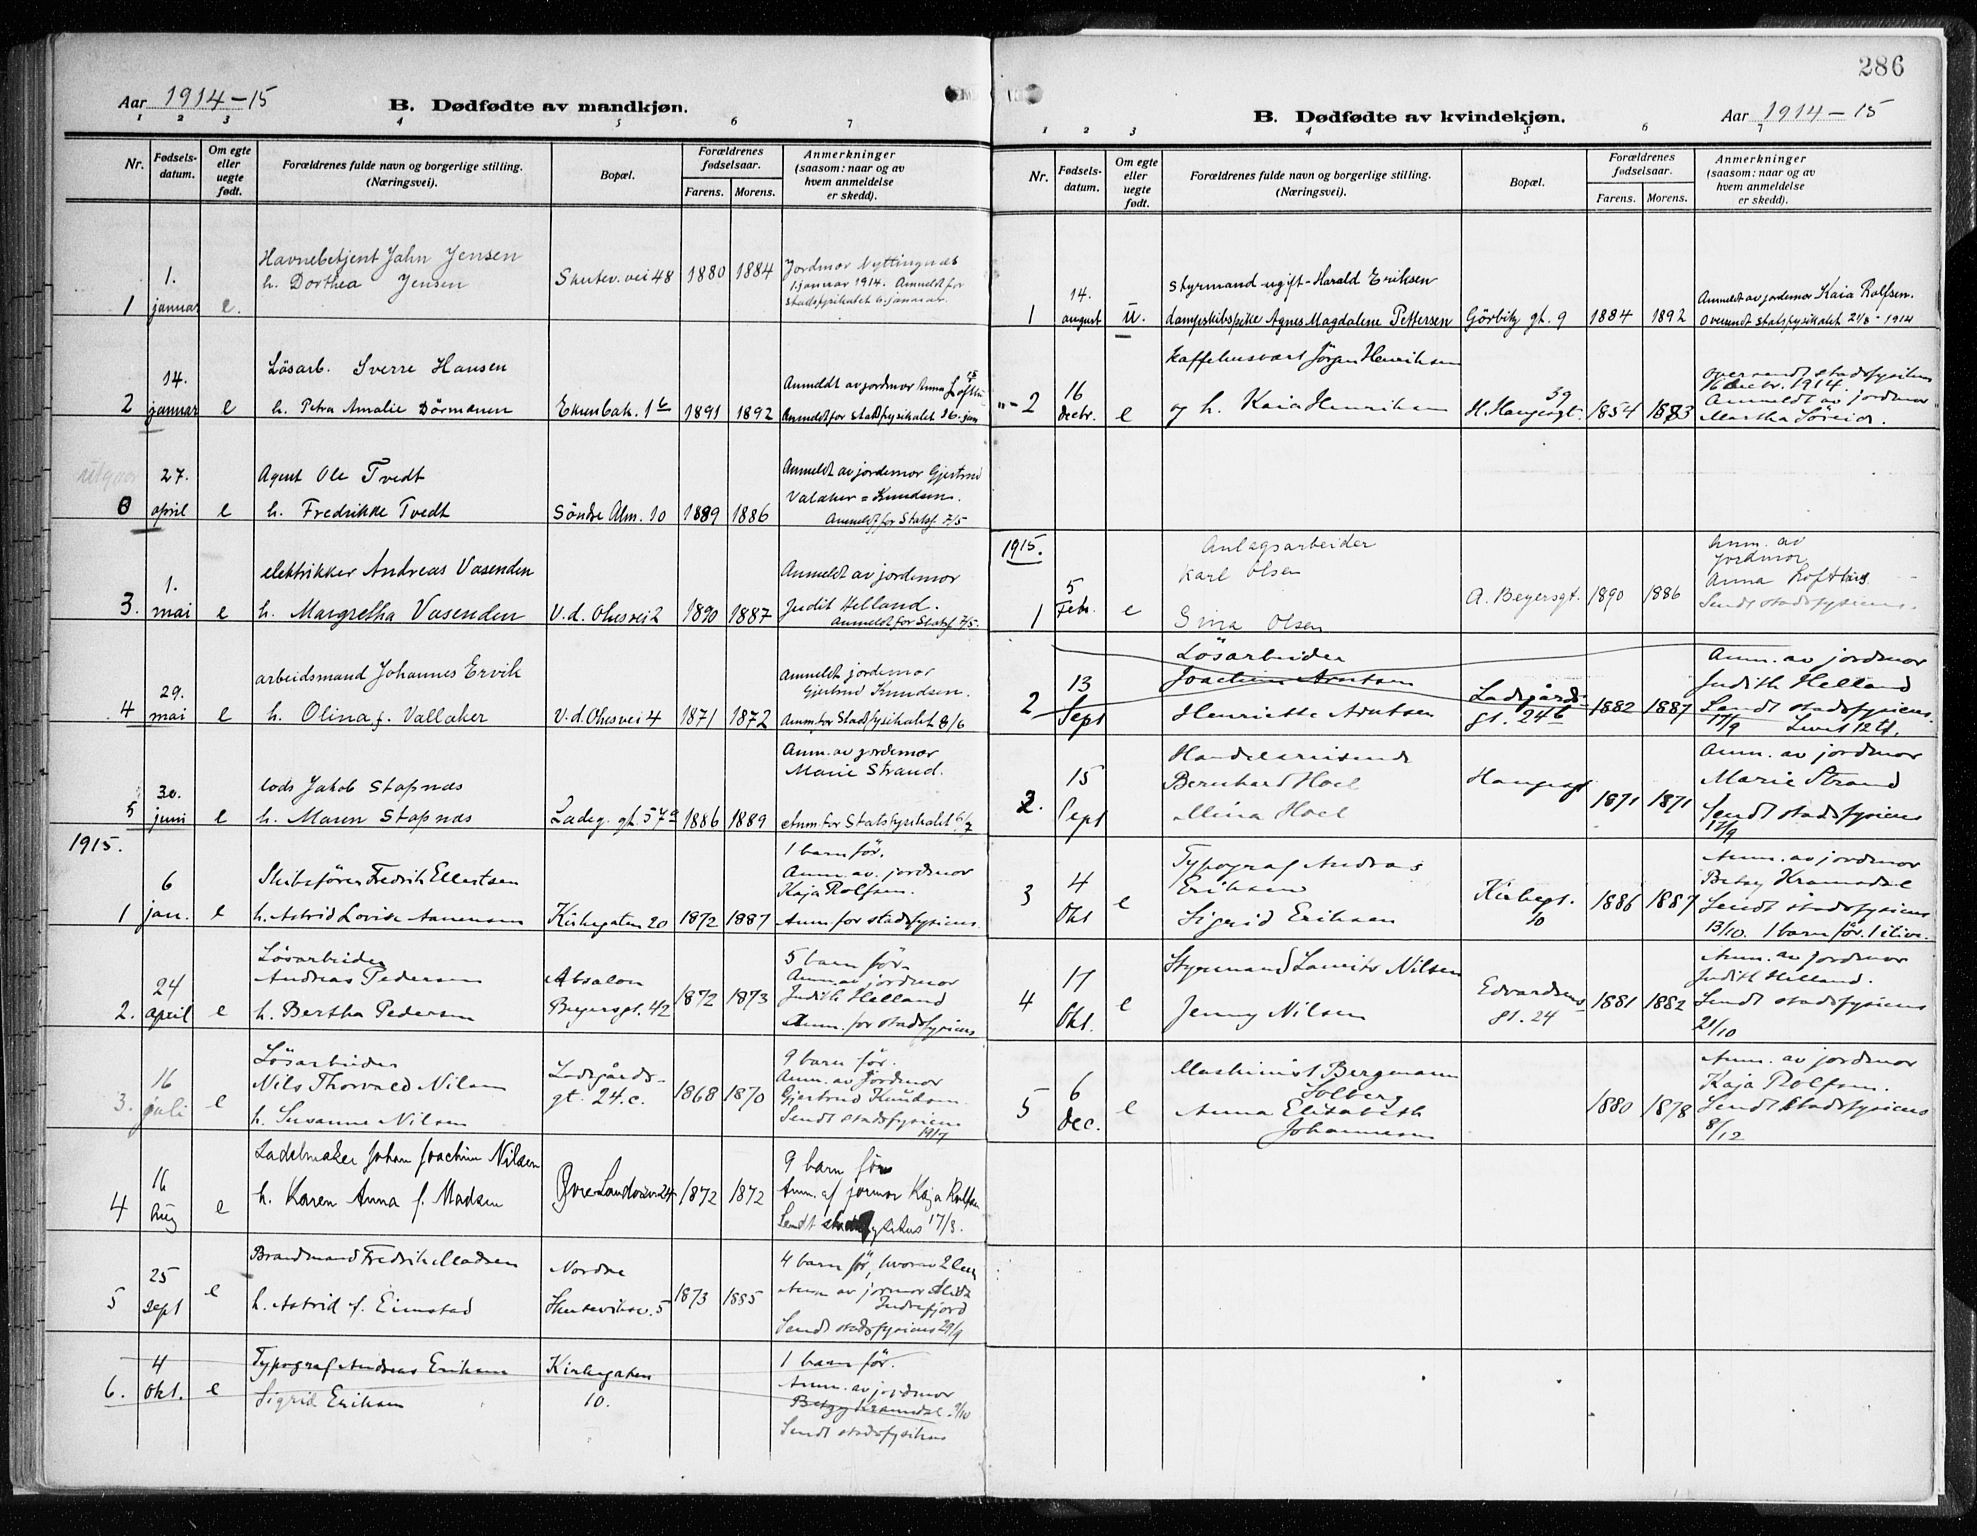 Aar 1914-15
B. Dødfødte av mandkjøn.
1 2 3 4 5 6 7
Nr.
Fødsels-datum.
Om egte eller uegte født.
Forældrenes fulde navn og borgerlige stilling. (Næringsvei).
Bopæl.
Forældrenes fødselsaar.
Farens. Morens.
Anmerkninger (saasom: naar og av hvem anmeldelse er skedd).
1 1. januar e.
Havnebetjent Jahn Jensen
h. Dorthea Jensen
Skutev. vei 48 1880 1884
Jordmor Nyttingnes
1. januar 1914. Anmeldt for
stadsfysikatet 6. januar.
2 14. januar e
Løsarb. Sverre Hansen
h. Petra Amalie Dörmanen
Ekrenbak. 1b 1891 1892
Anmeldt av jordmor Anna Lofthus
Anmeldt for Statsfysikatet 26. jan
utgaar
27. april e
Agent Ole Tvedt
h. Fredrikke Tvedt
Söndre Alm. 10 1889 1886
Anmeldt av jordemor Gjertrud
Valaker = Knudsen.
Anmeldt for Statsf. 7/5
3. 1. mai e
elektrikker Andreas Vasenden
h. Margretha Vasenden
V. d. Ohesvei 2 1890 1887
Anmeldt av jordemor
Judit Helland.
Anmeldt for Statsf. 7/5.
4 29. mai e
arbeidsmand Johannes Ervik
h. Olina f. Vallaker
V. d. Ohesvei 4 1871 1872
Anmeldt jordemor
Gjertrud Knudsen.
Anm. for Stadsfysikatet 8/6
5 30. juni e
lods Jakob Stapnæs
h. Maren Stapnæs
Ladeg. gt. 57a 1886 1889
Anm. av jordemor
Marie Strand.
Anm. for Statsfysikatet 6/7
1915.
1 6 jan. e
Skibsfører Fredrik Ellertsen
h. Astrid Lovise Aamensen
Kirkegaten 20 1872 1887
1 barn før.
Anm. av. jordmor
Kaja Rolfsen.
Anm. for stadsfysicus.
2. 24 april e
Løsarbeider
Andreas Pedersen
h. Bertha Pedersen
Absalon
Beyersgt. 42 1872 1873
5 barn før.
Anm. av jordmor
Judith Helland
Anm. for stadsfysicus
3. 16 juli e
Løsarbeider
Nils Thorvald Nilsen
h. Susanne Nilsen
Ladegårds-
gt. 24.c. 1868 1870
9 barn før.
Anm. av Jordmor
Gjertrud Knudsen.
Sendt stadsfysicus
19/7
4 16 Aug e
Ladelmaker Johan Joachim Nilsen
h. Karen Anna f. Madsen
Øvre Sandviksv 24 1872 1872
9 barn før
Anm. af jormor Kaja Rolfsen
Sendt stadsfysikus 17/8.
5 25 sept e
Brandmand Fredrik Madsen
h. Astrid f. Eimstad
Nordre
Skuteviksv. 5 1873 1885
4 barn før, hvorav 2 lever
Anm av jormor Alida
Indrefjord
Sendt stadsfysicus 29/9
6. 4 Okt. e
Typograf Andreas Eriksen
Sigrid Eriksen
Kirkegaten
10.
1 barn før.
Anm. av jordmor
Betzy Kramsdal. 9/10
Sendt stadsfysikus
286
B. Dødfødte av kvindekjøn.
Aar 1914-15
1 2 3 4 5 6 7
Nr.
Fødsels-datum.
Om egte eller uegte født.
Forældrenes fulde navn og borgerlige stilling. (Næringsvei).
Bopæl.
Forældrenes fødselsaar.
Farens. Morens.
Anmerkninger (saasom: naar og av hvem anmeldelse er skedd).
1 14. august u.
Styrmand ugift - Harald Eriksen
dampskibspike Agnes Magdalene Pettersen
Görbitz gt. 9 1884 1892
Anmeldt av jordemor Kaia Rolfsen.
Oversendt Statsfysikatet 21/8 - 1914
2 16 decbr. e
Kaffehusvært Jörgen Henriksen
og h. Kaia Henriksen
H. Haugesgt. 39 1854 1883
oversendt stadsfysikus
16 decbr. 1914.
Anmeldt av jordmor
Martha Søreide.
1915.
1 5 Febr. e
Anlægsarbeider
Karl Olsen
Gina Olsen
A. Beyersgt. 1890 1886
Anm. av
Jordmor
Anna Lofthus
Sendt stadsfysicus.
2 13 Sept
Løsarbeider
Joachim Arntsen
Henriette Arntsen
Ladegårds-
gt. 24b 1882 1887
Anm. av jordmor
Judith Helland
Sendt stadsfysicus.
17/9 Levet 12 td.
2. 15 Sept
Handelsreisende
Bernhard Hoel
Mina Hoel
Haugesgt 1871 1871
Anm. av jordmor
Marie Strand
Sendt stadsfysicus
17/9
3 4 Okt e
Typograf Andreas
Eriksen
Sigrid Eriksen
Kirkegt.
10 1886 1887
Anm. av jordmor
Betzy Kramsdal
Sendt stadsfysicus
13/10. 1 barn før. 1 ilive.
4 17 Okt. e
Styrmand Laurits Nilsen
Jenny Nilsen
Edvardsens
gt. 24 1881 1882
Anm. av jordmor
Judith Helland.
Sendt stadsfysicus
21/10
5 6 Dec. e
Maskinist Bergmann
Solberg
Anna Elisabeth
Johannesen
1880 1878
Anm. av jordmor
Kaja Rolfsen.
Sendt Stadsfysicus
8/12